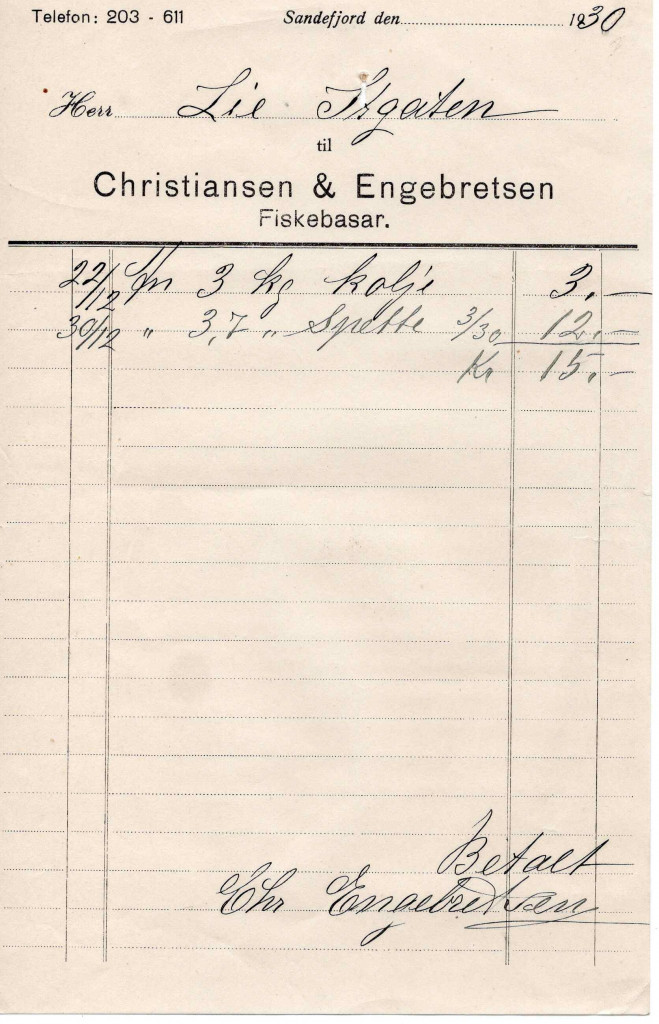 Telefon: 203 - 611 Sandefjord den 1930
Herr Lie Stgaten
til
Christiansen & Engebretsen
Fiskebasar.
22/12 3 kg kolje 3,-
30/12 " 3,7 " Spette 3/30 12,-
Kr 15,-
Betalt
Chr Engebretsen